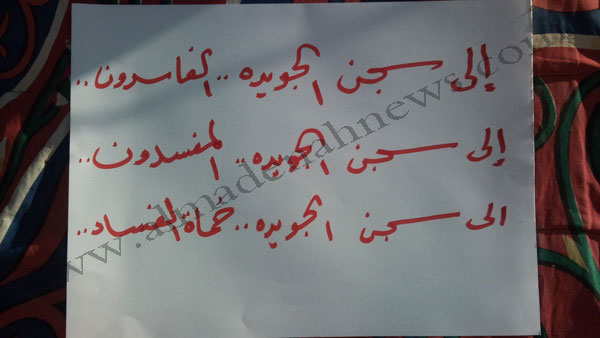 إلى سجن الجويده .. الفاسدون ..
إلى سجن الجويده .. المفسدون ..
الى سجن الجويده .. حُماة الفساد ..
www.almadenahnews.com